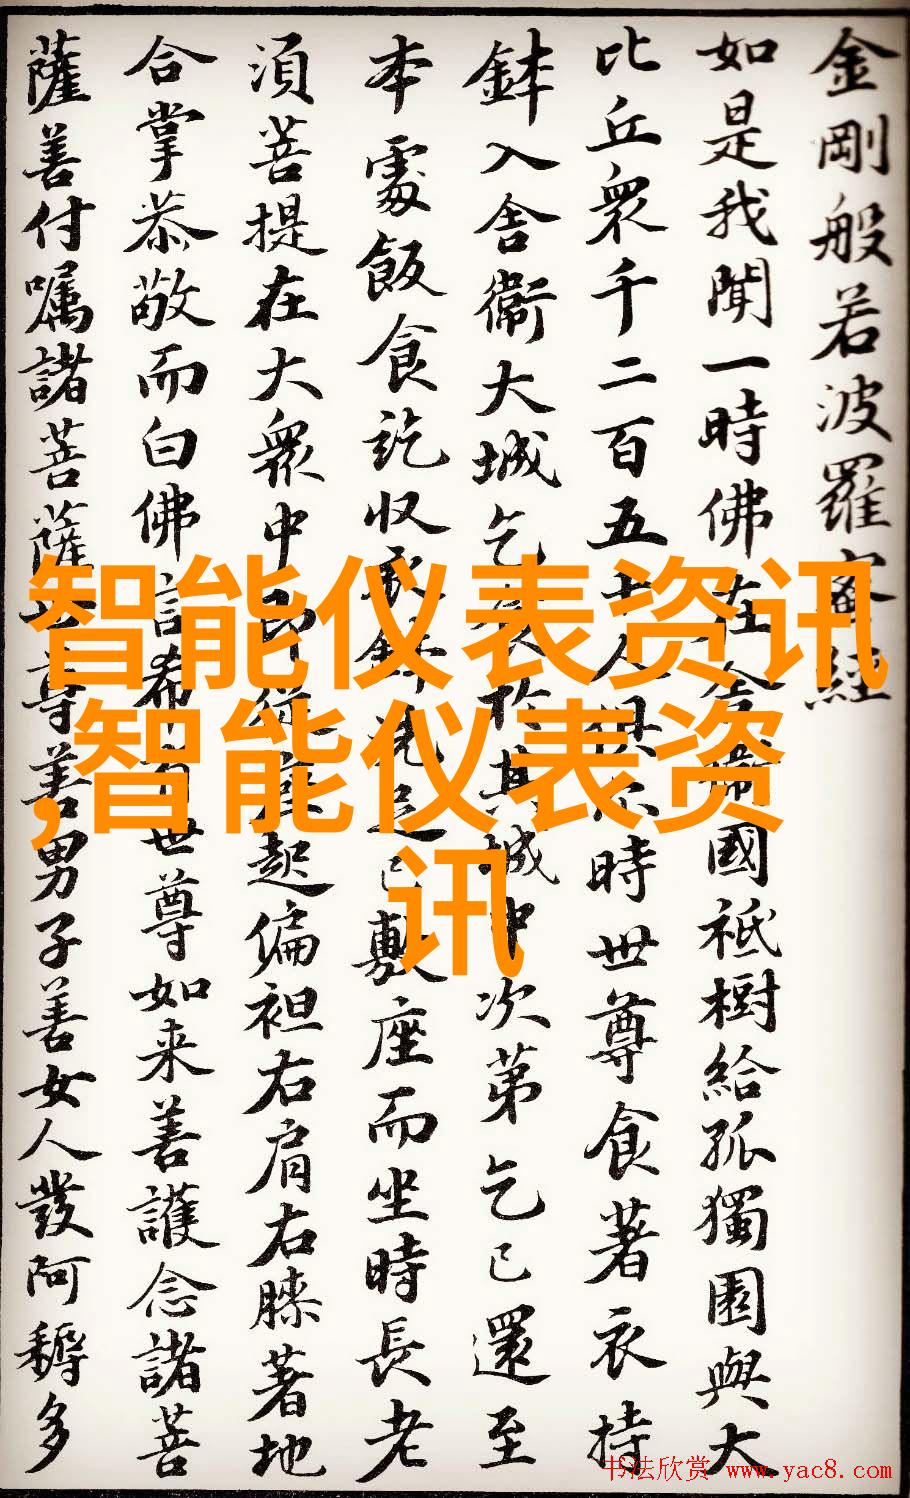 金剛般若波羅密經
如是我聞一時佛在舍衛國祇樹給孤獨園與大
比丘衆千二百五十人俱尒時世尊食著衣持
鉢入舍衛大城乞食於其城中次第乞已還至
本處飯食訖收衣鉢洗足已敷座而坐時長老
須菩提在大衆中即從座起偏袒右肩右膝著地
合掌恭敬而白佛言希有世尊如来善護念諸菩
薩善付嘱諸菩薩世尊善男子善女人發阿耨多
智能仪表资讯
,智能仪表资
讯
书法欣赏 www.yac8.com